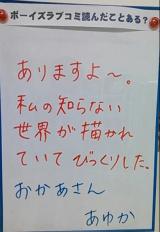 ボーイズラブコミ読んだことある?
ありますよ〜。
私の知らない
世界が描かれ
ていてびっくりした。
おかあさん
あゆか